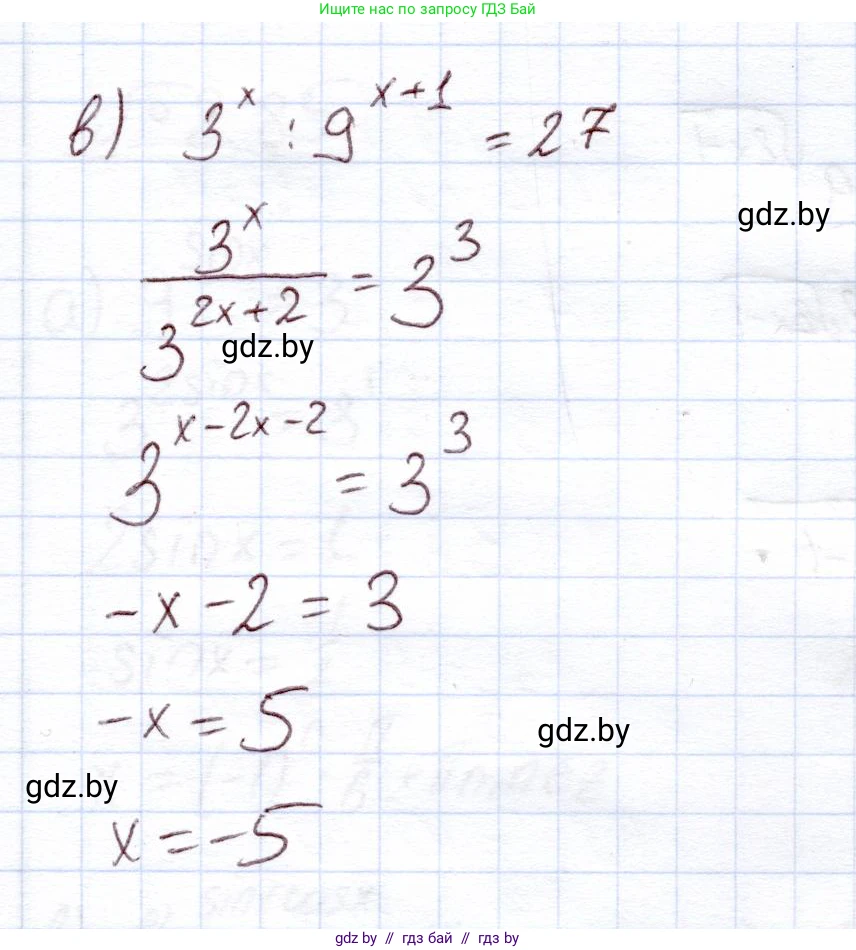 Ищите нас по запросу ГДЗ Бай
в) 3^x : 9^{x+1} = 27
gdz.by
3^x / 3^{2x+2} = 3^3
gdz.by
3^{x-2x-2} = 3^3
-x - 2 = 3
-x = 5
gdz.by
gdz.by
x = -5
gdz.by // гдз бай // гдз by